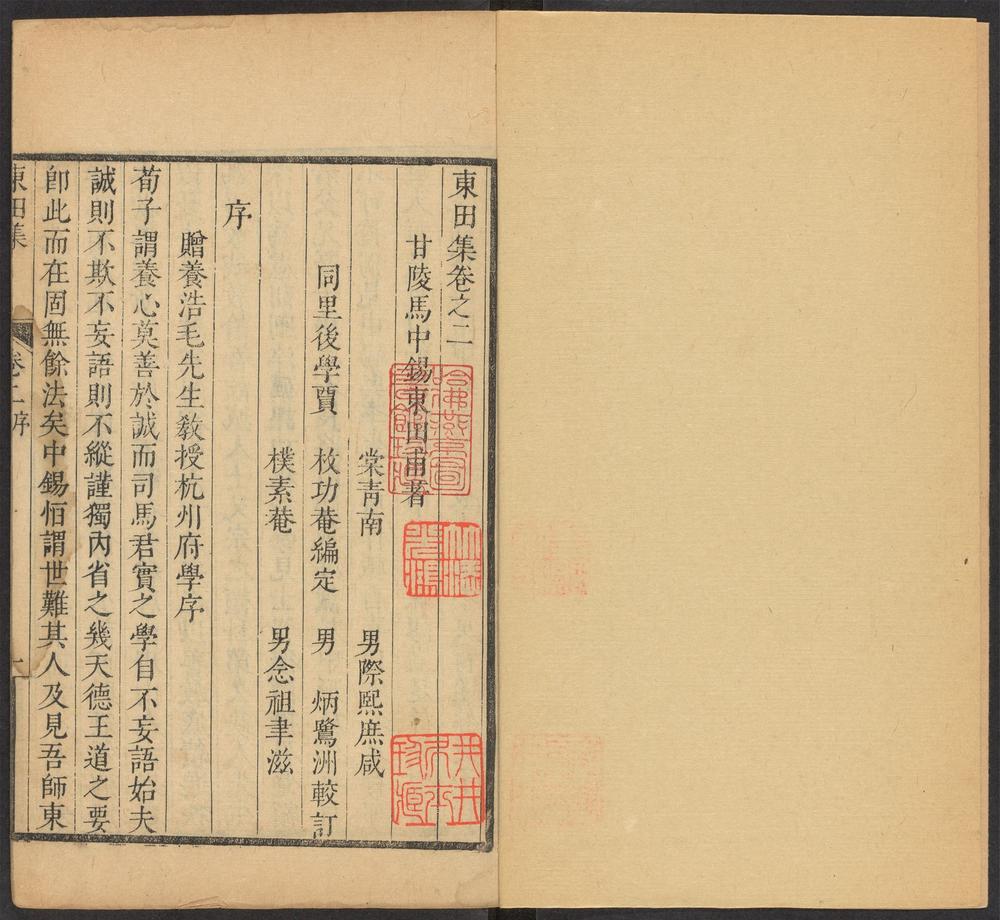 東田集卷之二
甘陵馬中錫東田甫著
棠青南　男際熙庶咸
同里後學賈　枚功菴編定　男　炳鷺洲較訂
樸素菴　男念祖聿滋
序
贈養浩毛先生敎授杭州府學序
荀子謂養心莫善於誠而司馬君實之學自不妄語始夫
誠則不欺不妄語則不縱謹獨內省之幾天德王道之要
卽此而在固無餘法矣中錫恒謂世難其人及見吾師東
東田集
卷二序
哈佛燕京圖
書館珍藏